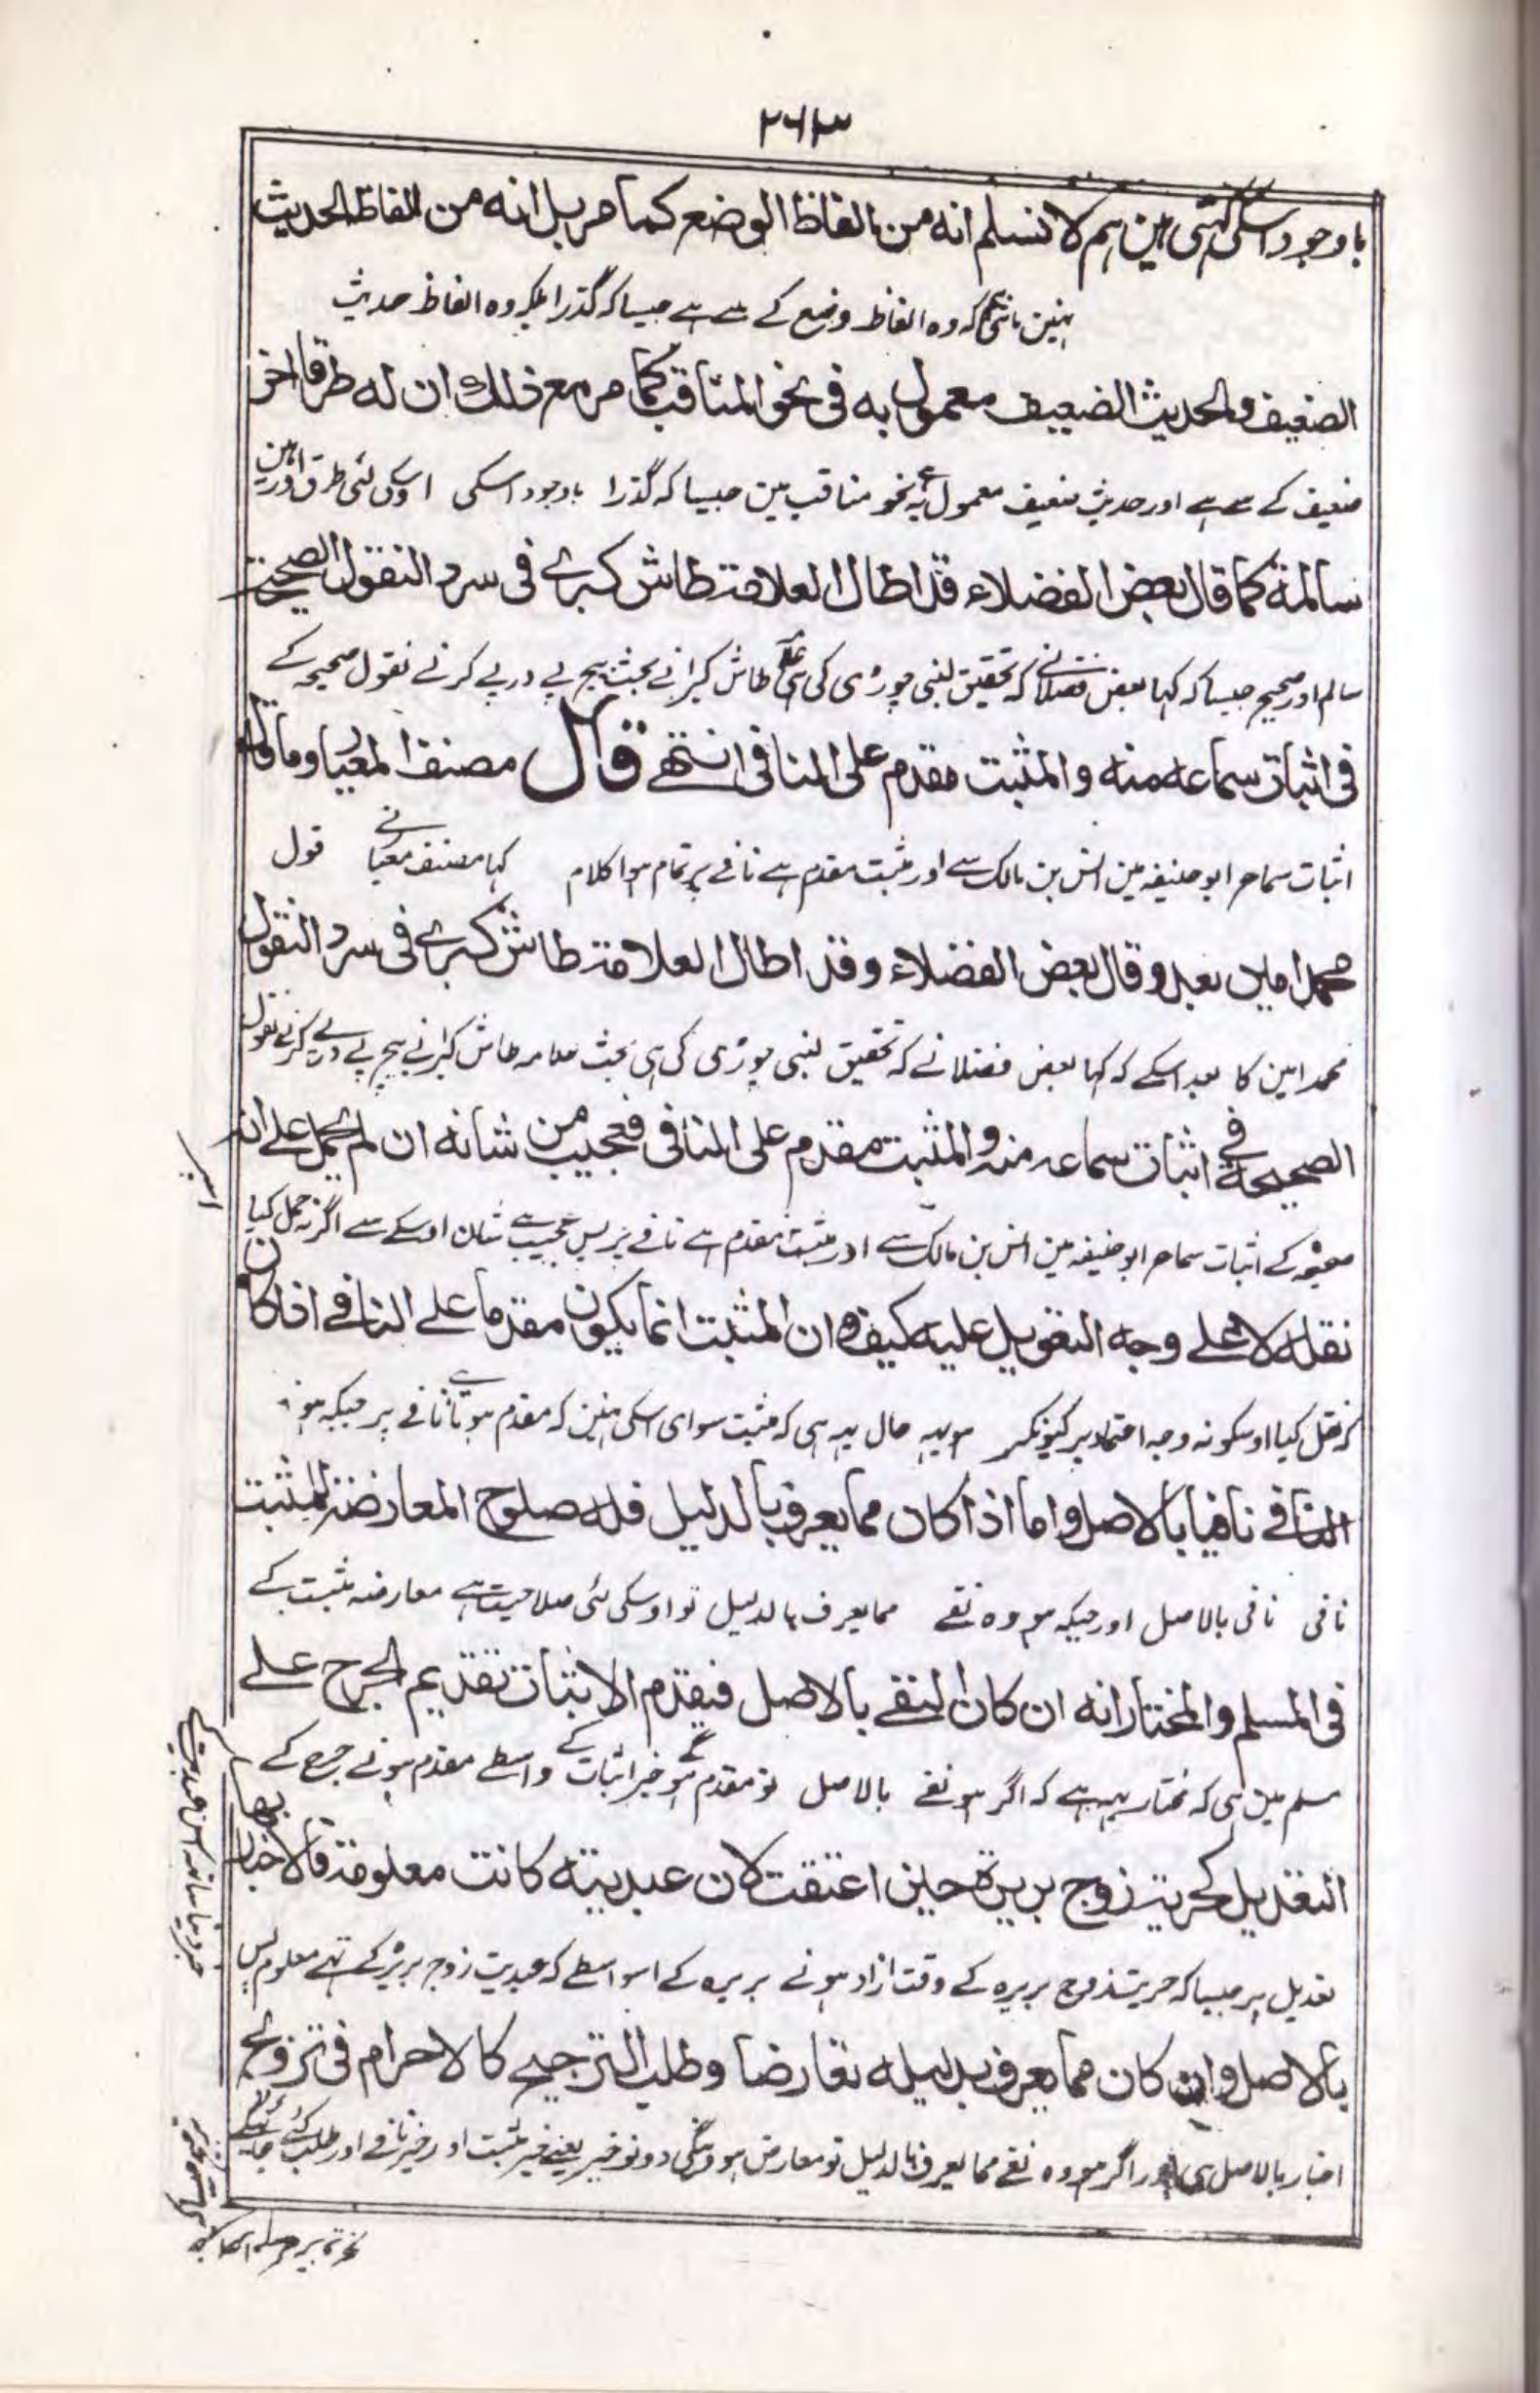 ٢٦٣
باوجود اسکی کہتی ہین ہم لا نسلم انه من الفاظ الوضع كما مر بل انه من الفاظ الحديث
نہین مانتی کہ وہ الفاظ وضع کے سے ہے جیسا کہ گذرا بلکہ وہ الفاظ حدیث
الضعيف والحديث الضعيف معمول به فى نحو المناقب كما مر مع ذلك ان له طرقا اخر
ضعیف کے سے ہے اور حدیث ضعیف معمول بہ ہے نحو مناقب مین جیسا کہ گذرا باوجود اسکی اوسکی لئی طرق اور ہین
سالمة كما قال بعض الفضلاء قد اطال العلامة طاش كبرے فى سرد النقول الصحيحة
سالم اور صحیح جیسا کہ کہا بعض فضلا نے کہ تحقیق لنبی چوڑی کی ہی علامہ طاش کبرا نے بحث بیچ پے در پے کرنے نقول صحیحہ کے
فى اثبات سماعه منه والمثبت مقدم على المنافى انتهے قال مصنف المعيار وما قال
اثبات سماع ابو حنیفہ مین انس بن مالک سے اور مثبت مقدم ہے نافے پر تمام ہوا کلام کہا مصنف معیار نے قول
محمد امين بعد وقال بعض الفضلاء وقد اطال العلامة طاش كبرے فى سرد النقول
محمد امین کا بعد اسکے کہ کہا بعض فضلا نے کہ تحقیق لنبی چوڑی کی ہی بحث علامہ طاش کبرا نے بیچ پے در پے کرنے نقول
الصحيحة فى اثبات سماعه منه والمثبت مقدم على المنافى فعجيب من شانه ان لم يحمل على انه
صحیحہ کے اثبات سماع ابو حنیفہ مین انس بن مالک سے اور مثبت مقدم ہے نافے پر پس عجیب ہے شان اوسکے سے اگر نہ حمل کیا
اسپر
نقله لا علے وجه التعويل عليه كيف وان المثبت انما يكون مقدما علے النافے اذا كان
کہ نقل کیا اوسکو نہ وجہ اعتماد پر کیونکر ہو یہہ حال یہہ ہی کہ مثبت سوای اسکی نہین کہ مقدم ہوتا ہے نافے پر جبکہ ہو
النافے نافيا بالاصل واما اذا كان مما يعرف بالدليل فله صلوح المعارضة للمثبت
نافی نافی بالاصل اور جبکہ ہو وہ نفے مما یعرف بالدلیل تو اوسکی لئی صلاحیت ہے معارضہ مثبت کے
فى المسلم والمختار انه ان كان النفے بالاصل فيقدم الاثبات تقديم الجرح علے
مسلم مین ہی کہ مختار یہہ ہے کہ اگر ہو نفے بالاصل تو مقدم ہوگے خبر اثبات کے واسطے مقدم ہونے جرح کے
التعديل كحرية زوج بريرة حين اعتقت لان عبديته كانت معلومة فالاخبار بها
تعدیل پر جیسا کہ حریت زوج بریرہ کے وقت ازاد ہونے بریرہ کے اسواسطے کہ عبدیت زوج بریرہ کے تہے معلوم پس
بالاصل وان كان مما يعرف بدليله تعارضا وطلب الترجيح كالاحرام فى تزوج
اخبار بالاصل ہی اور اگر ہو وہ نفے مما یعرف بالدلیل تو معارض ہونگی دونو خبر یعنے خبر مثبت اور خبر نافے اور طلب کئے جائگے